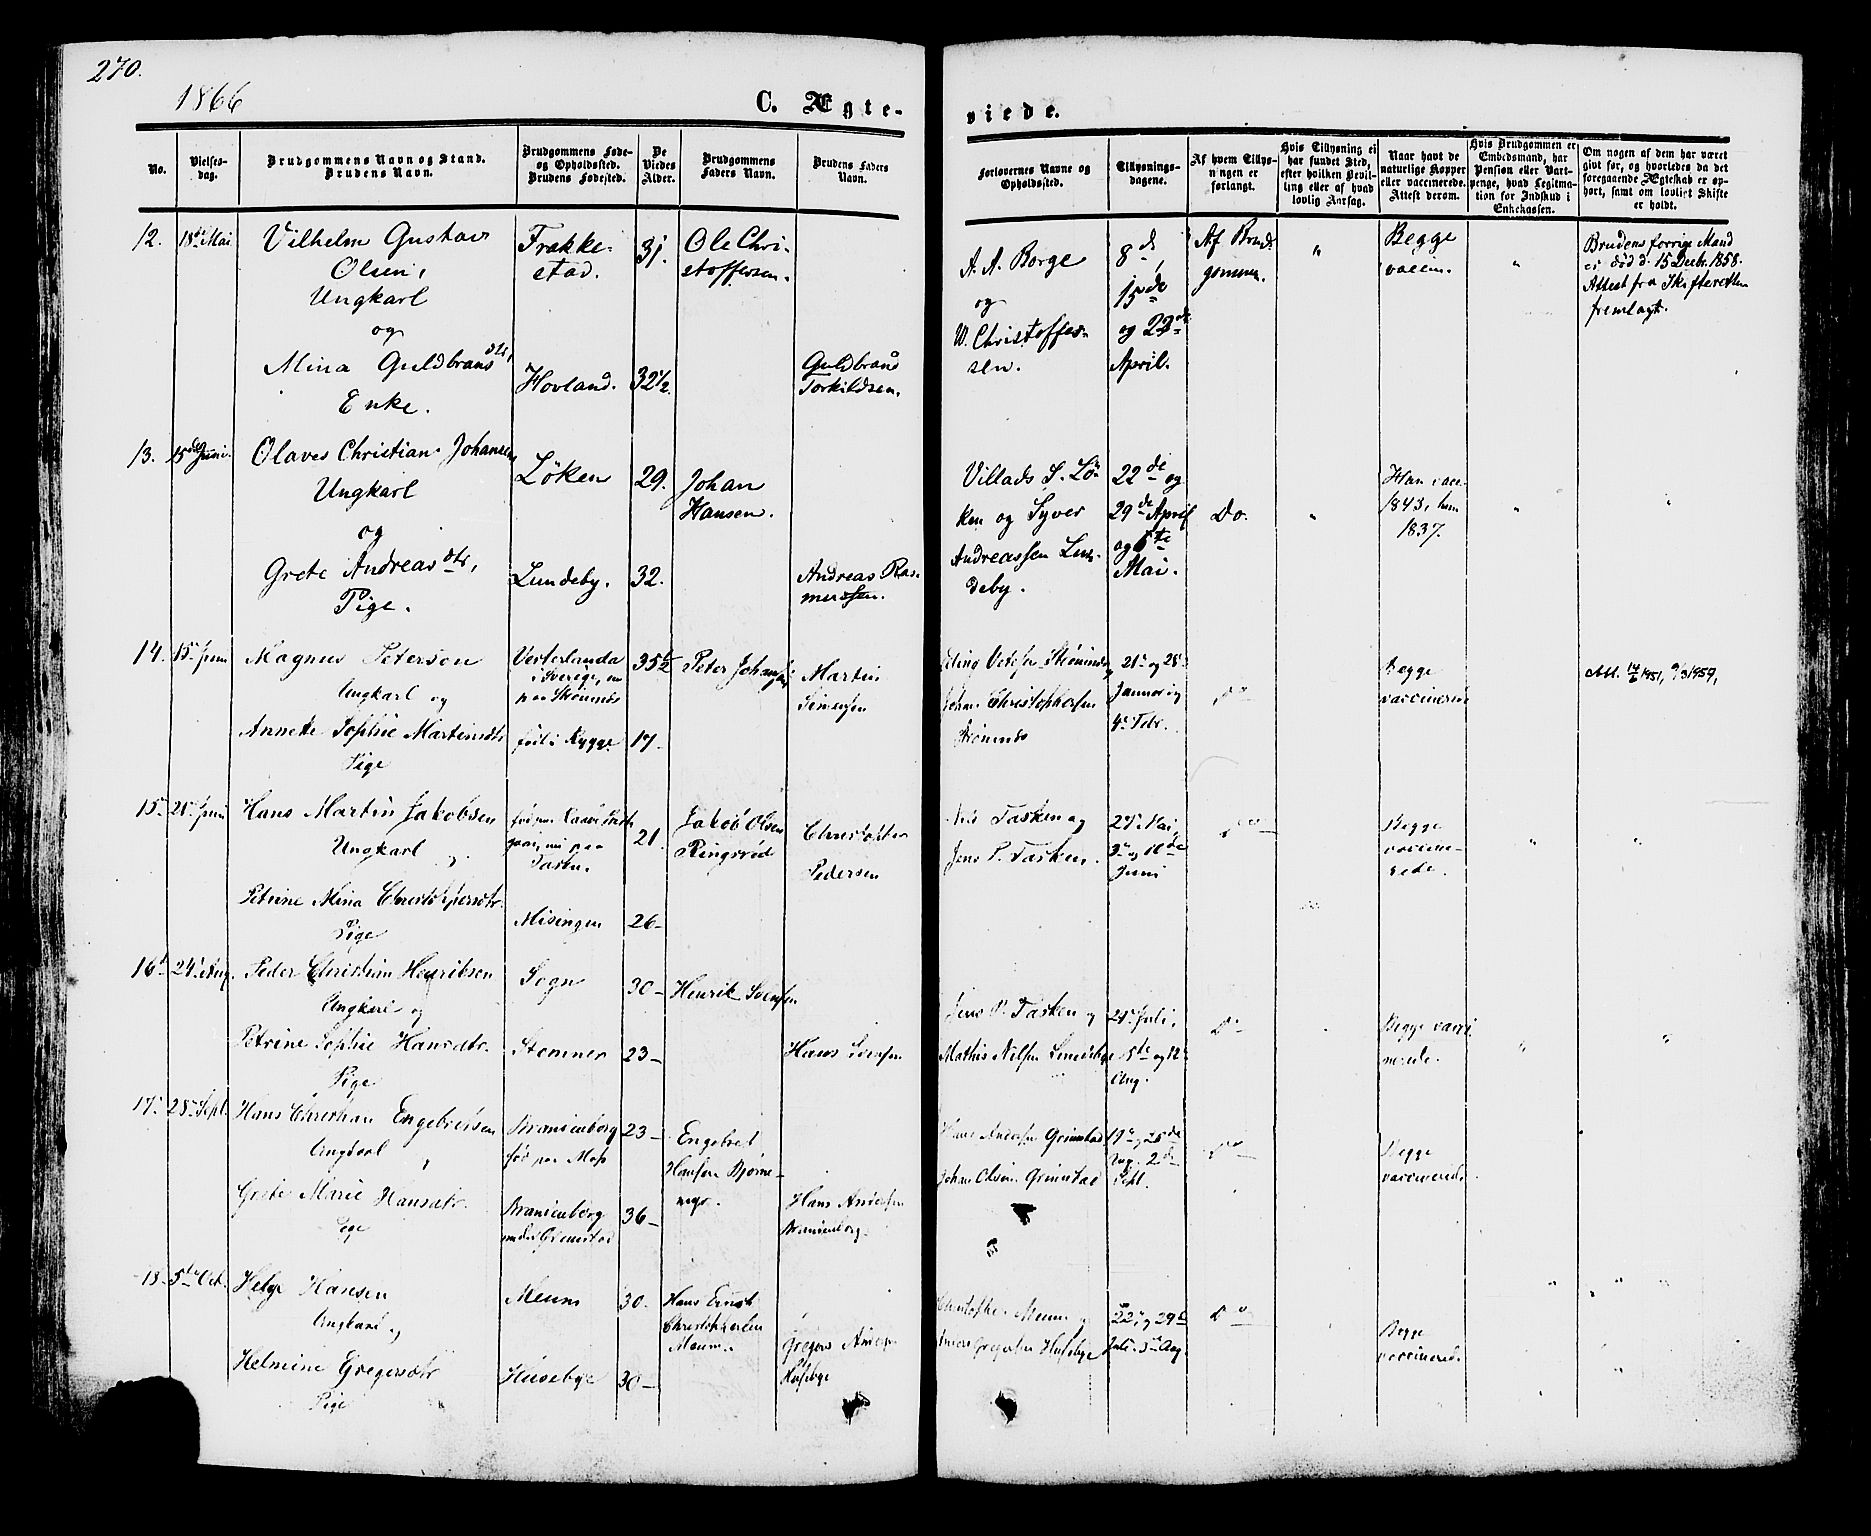 270.
1866
C. Ægte-
viede.
No.
Vielses-
dag.
Brudgommens Navn og Stand.
Brudens Navn.
Brudgommens Føde-
og Opholdssted.
Brudens Fødested.
De
Viedes
Alder.
Brudgommens
Faders Navn.
Brudens Faders
Navn.
Forlovernes Navne og
Opholdssted.
Tillysnings-
dagene.
Af hvem Tillys-
ningen er
forlangt.
Hvis Tillysning ei
har fundet Sted,
efter hvilken Bevil-
ling eller af hvad
lovlig Aarsag.
Naar havt de
naturlige Kopper
eller vaccinerede.
Attest derom.
Hvis Brudgommen er
Embedsmand, har
Pension eller Vart-
penge, hvad Legitima-
tion for Indskud i
Enkekassen.
Om nogen af dem har været
givt før, og hvorledes da det
foregaaende Ægteskab er op-
hørt, samt om lovligt Skifte
er holdt.
12. 18de Mai Vilhelm Gustav
Olsen,
Ungkarl
og
Mina Guldbransdtr,
Enke.
Frakke-
stad.
Hovland.
31.
32½.
Ole Chri-
stoffersen.
Guldbrand
Torkildsen.
A. A. Borge
og
W. Christoffer-
sen.
8de,
15de
og 22de
April.
Af Brud-
gommen.
"
Begge
vaccin.
"
Brudens forrige Mand
er død d. 15 Decbr. 1858.
Attest fra Skifteretten
fremlagt.
13. 15de Juni. Olaves Christian Johansen
Ungkarl
og
Grete Andreasdtr,
Pige.
Løken
Lundeby.
29.
32.
Johan
Hansen.
Andreas Ras-
mussen.
Villads S. Lø-
ken og Syver
Andreassen Lun-
deby.
22de og
29de April
og 6te
Mai.
Do.
"
Han vacc.
1843, hun
1837.
"
"
14. 15. Juni Magnus Peterson
Ungkarl og
Annette Sophie Martinsdtr
Pige
Vesterlanda
i Sverige, nu
paa
født i Rygge
35½
17-
Peter
Martin
Simensen
Johan Christophersen
21. og 28.
Januar og
4. Febr.
Do
Begge
vaccinerede
Att. 1951, 1959,
15. Juni Hans Martin Jakobsen
Ungkarl
og
Petrine Mina Christophersdtr.
Pige
nu paa
Tasken.
Misingen
21.
26-
Jakob Olsen
Ringsrød
Christopher
Pedersen
Tasken og
Jens P. Tasken.
27. Mai,
3. og 10de
Juni
Do
Begge
vaccine-
rede.
"
"
16. 24. Aug. Peder Christian Henriksen
Ungkarl og
Petrine Sophie Hansdtr.
Pige
Sogn
Stomner
30-
23-
Henrik Svensen
Hans Svensen
Jens P. Tasken og
Mathis Nilsen
Juli,
5te og 12.
Aug.
Do
Begge vacci-
nerede.
"
"
17. 28. Sept. Hans Christian Engebretsen
Ungkarl
Grete Marie Hansdtr.
Pige
Branienborg
fød paa Moss
Branienborg
under Grimstad
23-
36-
Engebret
Hansen Bjørne-
myr.
Hans Andersen
Branienborg.
Hans Andersen Grimstad
Johan Olsen Grimstad
19. og 26de
Aug. 2de
Sept.
Do
Begge
vaccinered.
18. 5te Oct. Helge Hansen
Ungkarl og
Helmine Gregersdtr
Pige
Meum
Husebye
30.
30-
Hans Ernst
Christophersen
Meum.
Gregers
Husebye
Meum og
Gregersen Husebye
22. og 29de
Juli. 5te Aug.
Do
Begge
vaccinered.
"
"